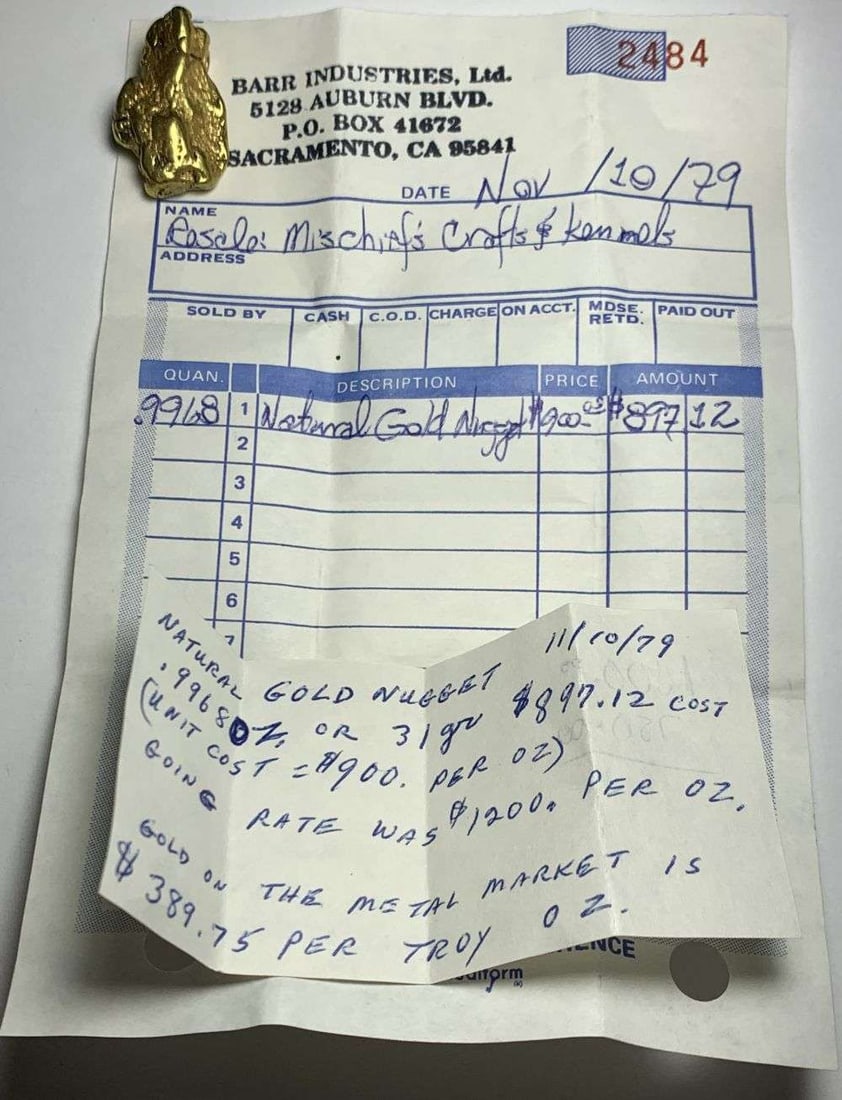 2484
BARR INDUSTRIES, Ltd.
5128 AUBURN BLVD.
P.O. BOX 41672
SACRAMENTO, CA 95841
DATE Nov /10/79
NAME
Mischief's Crafts & Kennels
ADDRESS
SOLD BY CASH C.O.D. CHARGE ON ACCT. MDSE. RETD. PAID OUT
QUAN. DESCRIPTION PRICE AMOUNT
.9968 1 Natural Gold Nugget $900.00 $897 12
2
3
4
5
6
11/10/79
NATURAL GOLD NUGGET
.9968 OZ. OR 31 gr $897.12 COST
(UNIT COST = $900. PER OZ)
GOING RATE WAS $1200. PER OZ.
GOLD ON THE METAL MARKET IS
$389.75 PER TROY OZ.